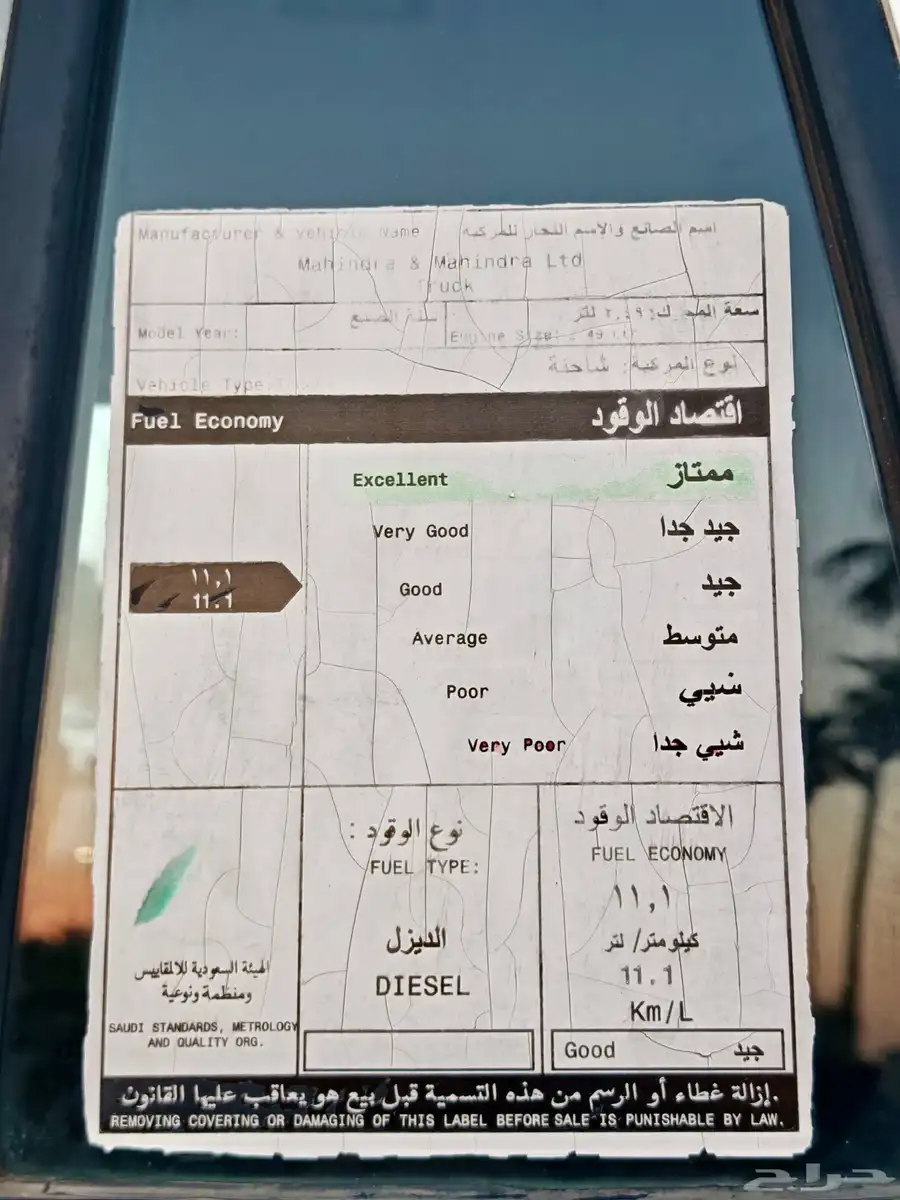 Manufacturer & Vehicle Name اسم الصانع والاسم التجار للمركبة
Mahindra & Mahindra Ltd
Truck
Model Year: سنة الصنع
سعة المحرك: ٢.٤٩ لتر
Engine Size: 2.49
نوع المركبة: شاحنة
Vehicle Type:
Fuel Economy اقتصاد الوقود
Excellent ممتاز
Very Good جيد جدا
١١,١
11.1
Good جيد
Average متوسط
Poor
Very Poor شيي جدا
نوع الوقود :
FUEL TYPE:
الديزل
DIESEL
الاقتصاد الوقود
FUEL ECONOMY
١١,١
كيلومتر/ لتر
11.1
Km/L
Good جيد
الهيئة السعودية للالمقاييس
ومنظمة ونوعية
SAUDI STANDARDS, METROLOGY
AND QUALITY ORG.
إزالة غطاء أو الرسم من هذه التسمية قبل بيع هو يعاقب عليها القانون.
REMOVING COVERING OR DAMAGING OF THIS LABEL BEFORE SALE IS PUNISHABLE BY LAW.
حراج